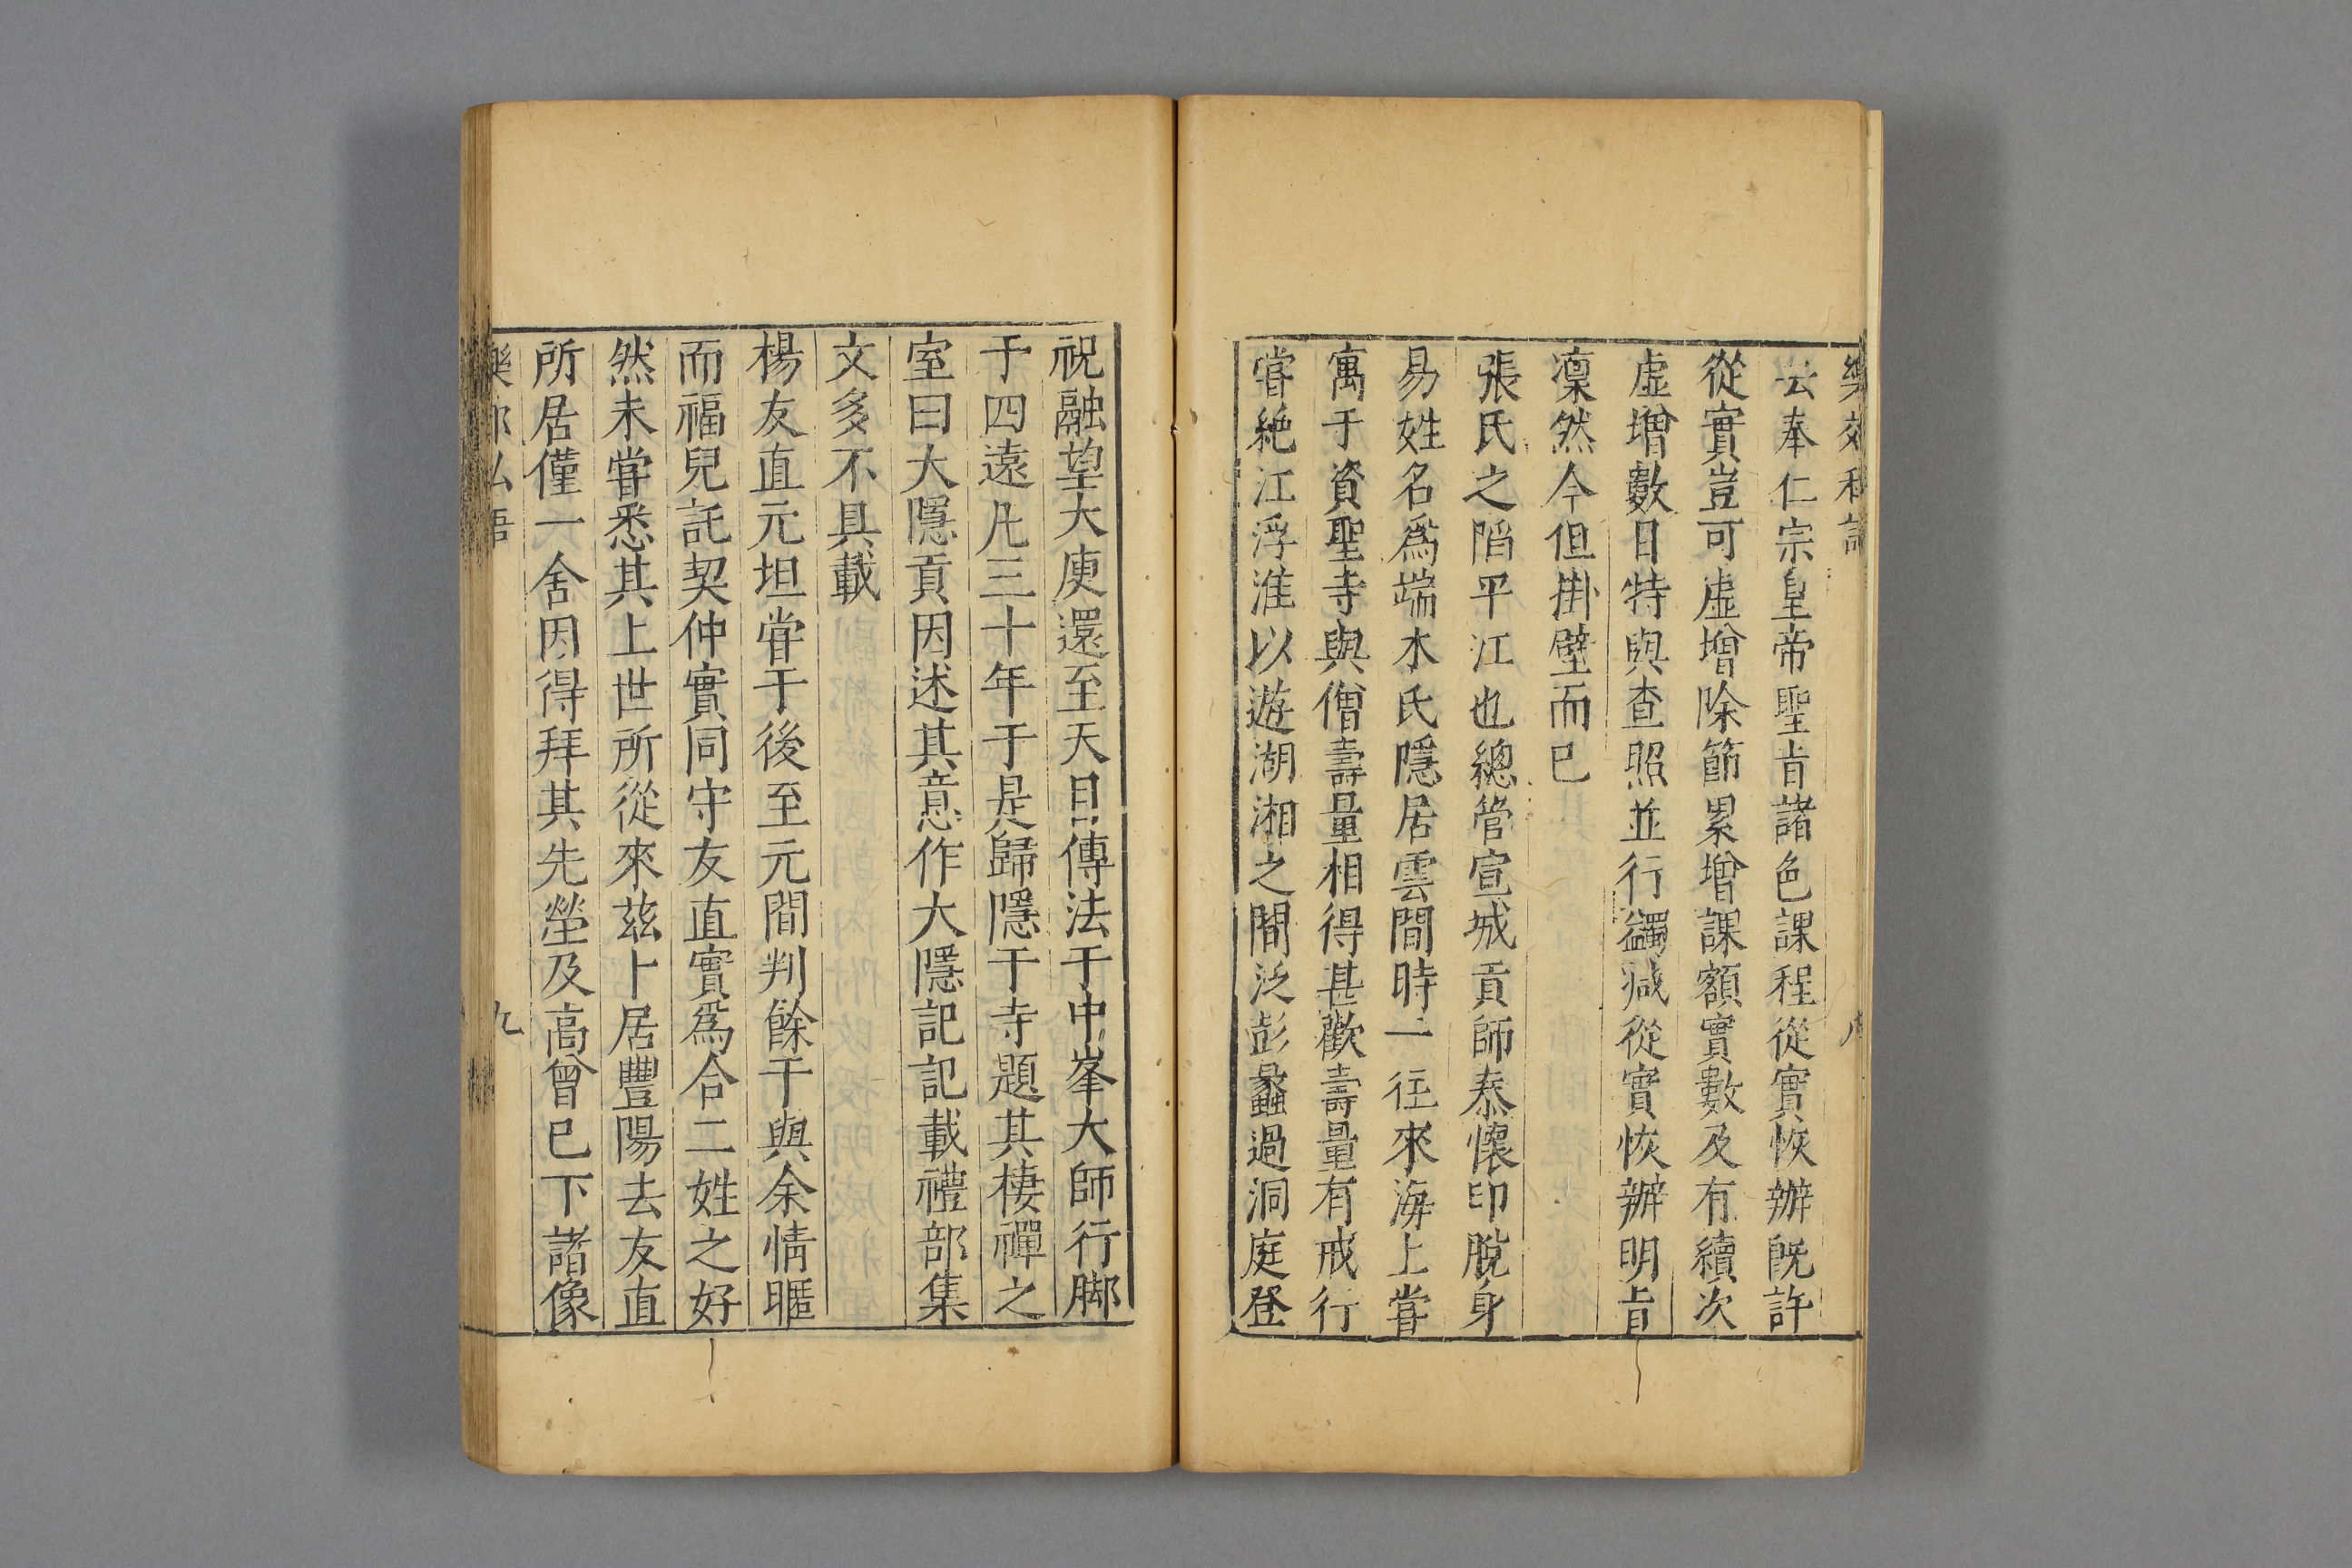 樂郊私語 八
云奉仁宗皇帝聖旨諸色課程從實恢辦既許
從實豈可虛增除節累增課額實數及有續次
虛增數目特與查照並行蠲減從實恢辦明旨
凜然今但掛壁而已
張氏之陷平江也總管宣城貢師泰懷印脫身
易姓名爲端木氏隱居雲間時一往來海上嘗
寓于資聖寺與僧壽量相得甚歡壽量有戒行
嘗絶江浮淮以遊湖湘之間泛彭蠡過洞庭登
祝融望大庾還至天目傳法于中峯大師行脚
于四遠凡三十年于是歸隱于寺題其棲禪之
室曰大隱貢因述其意作大隱記記載禮部集
文多不具載
楊友直元坦嘗于後至元間判餘干與余情暱
而福兒託契仲實同守友直實爲合二姓之好
然未嘗悉其上世所從來茲卜居豐陽去友直
所居僅一舍因得拜其先塋及高曾已下諸像
樂郊私語 九